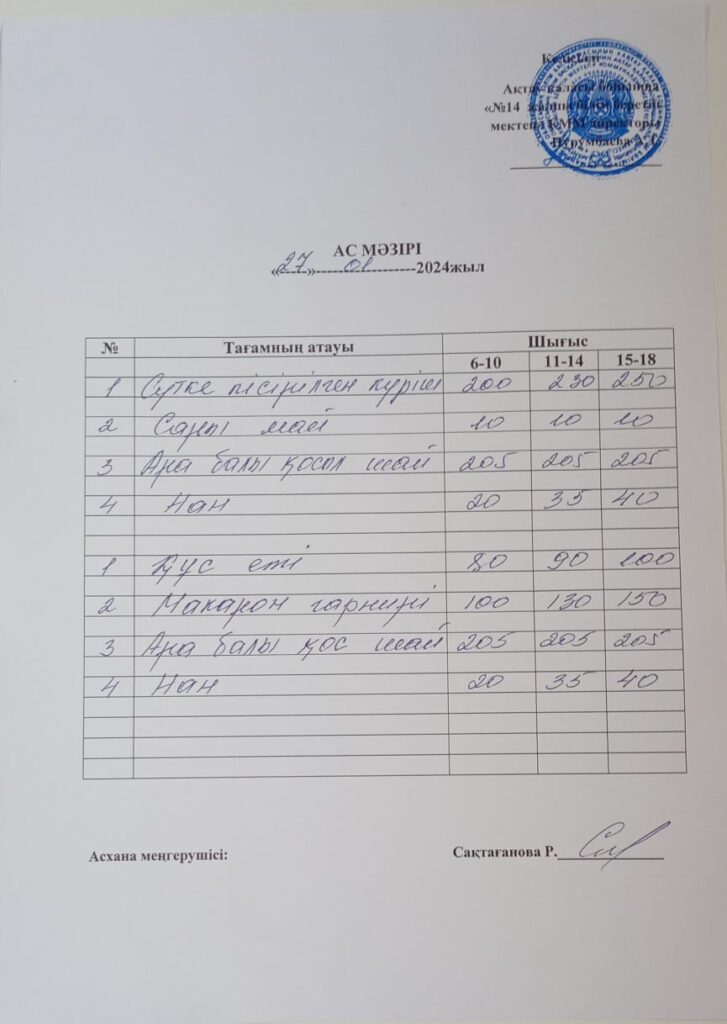 Келісілген
Ақтау қаласы бойынша
«№14 жалпы білім беретін
мектеп» КММ директоры
АС МӘЗІРІ
«27» 01 2024жыл
№ Тағамның атауы Шығыс
6-10 11-14 15-18
1 Сүтке пісірілген күріш 200 230 250
2 Сары май 10 10 10
3 Ара балы қосыл шай 205 205 205
4 Нан 20 35 40
1 Құс еті 80 90 100
2 Макарон гарнирі 100 130 150
3 Ара балы қос шай 205 205 205
4 Нан 20 35 40
Асхана меңгерушісі: Сақтағанова Р.